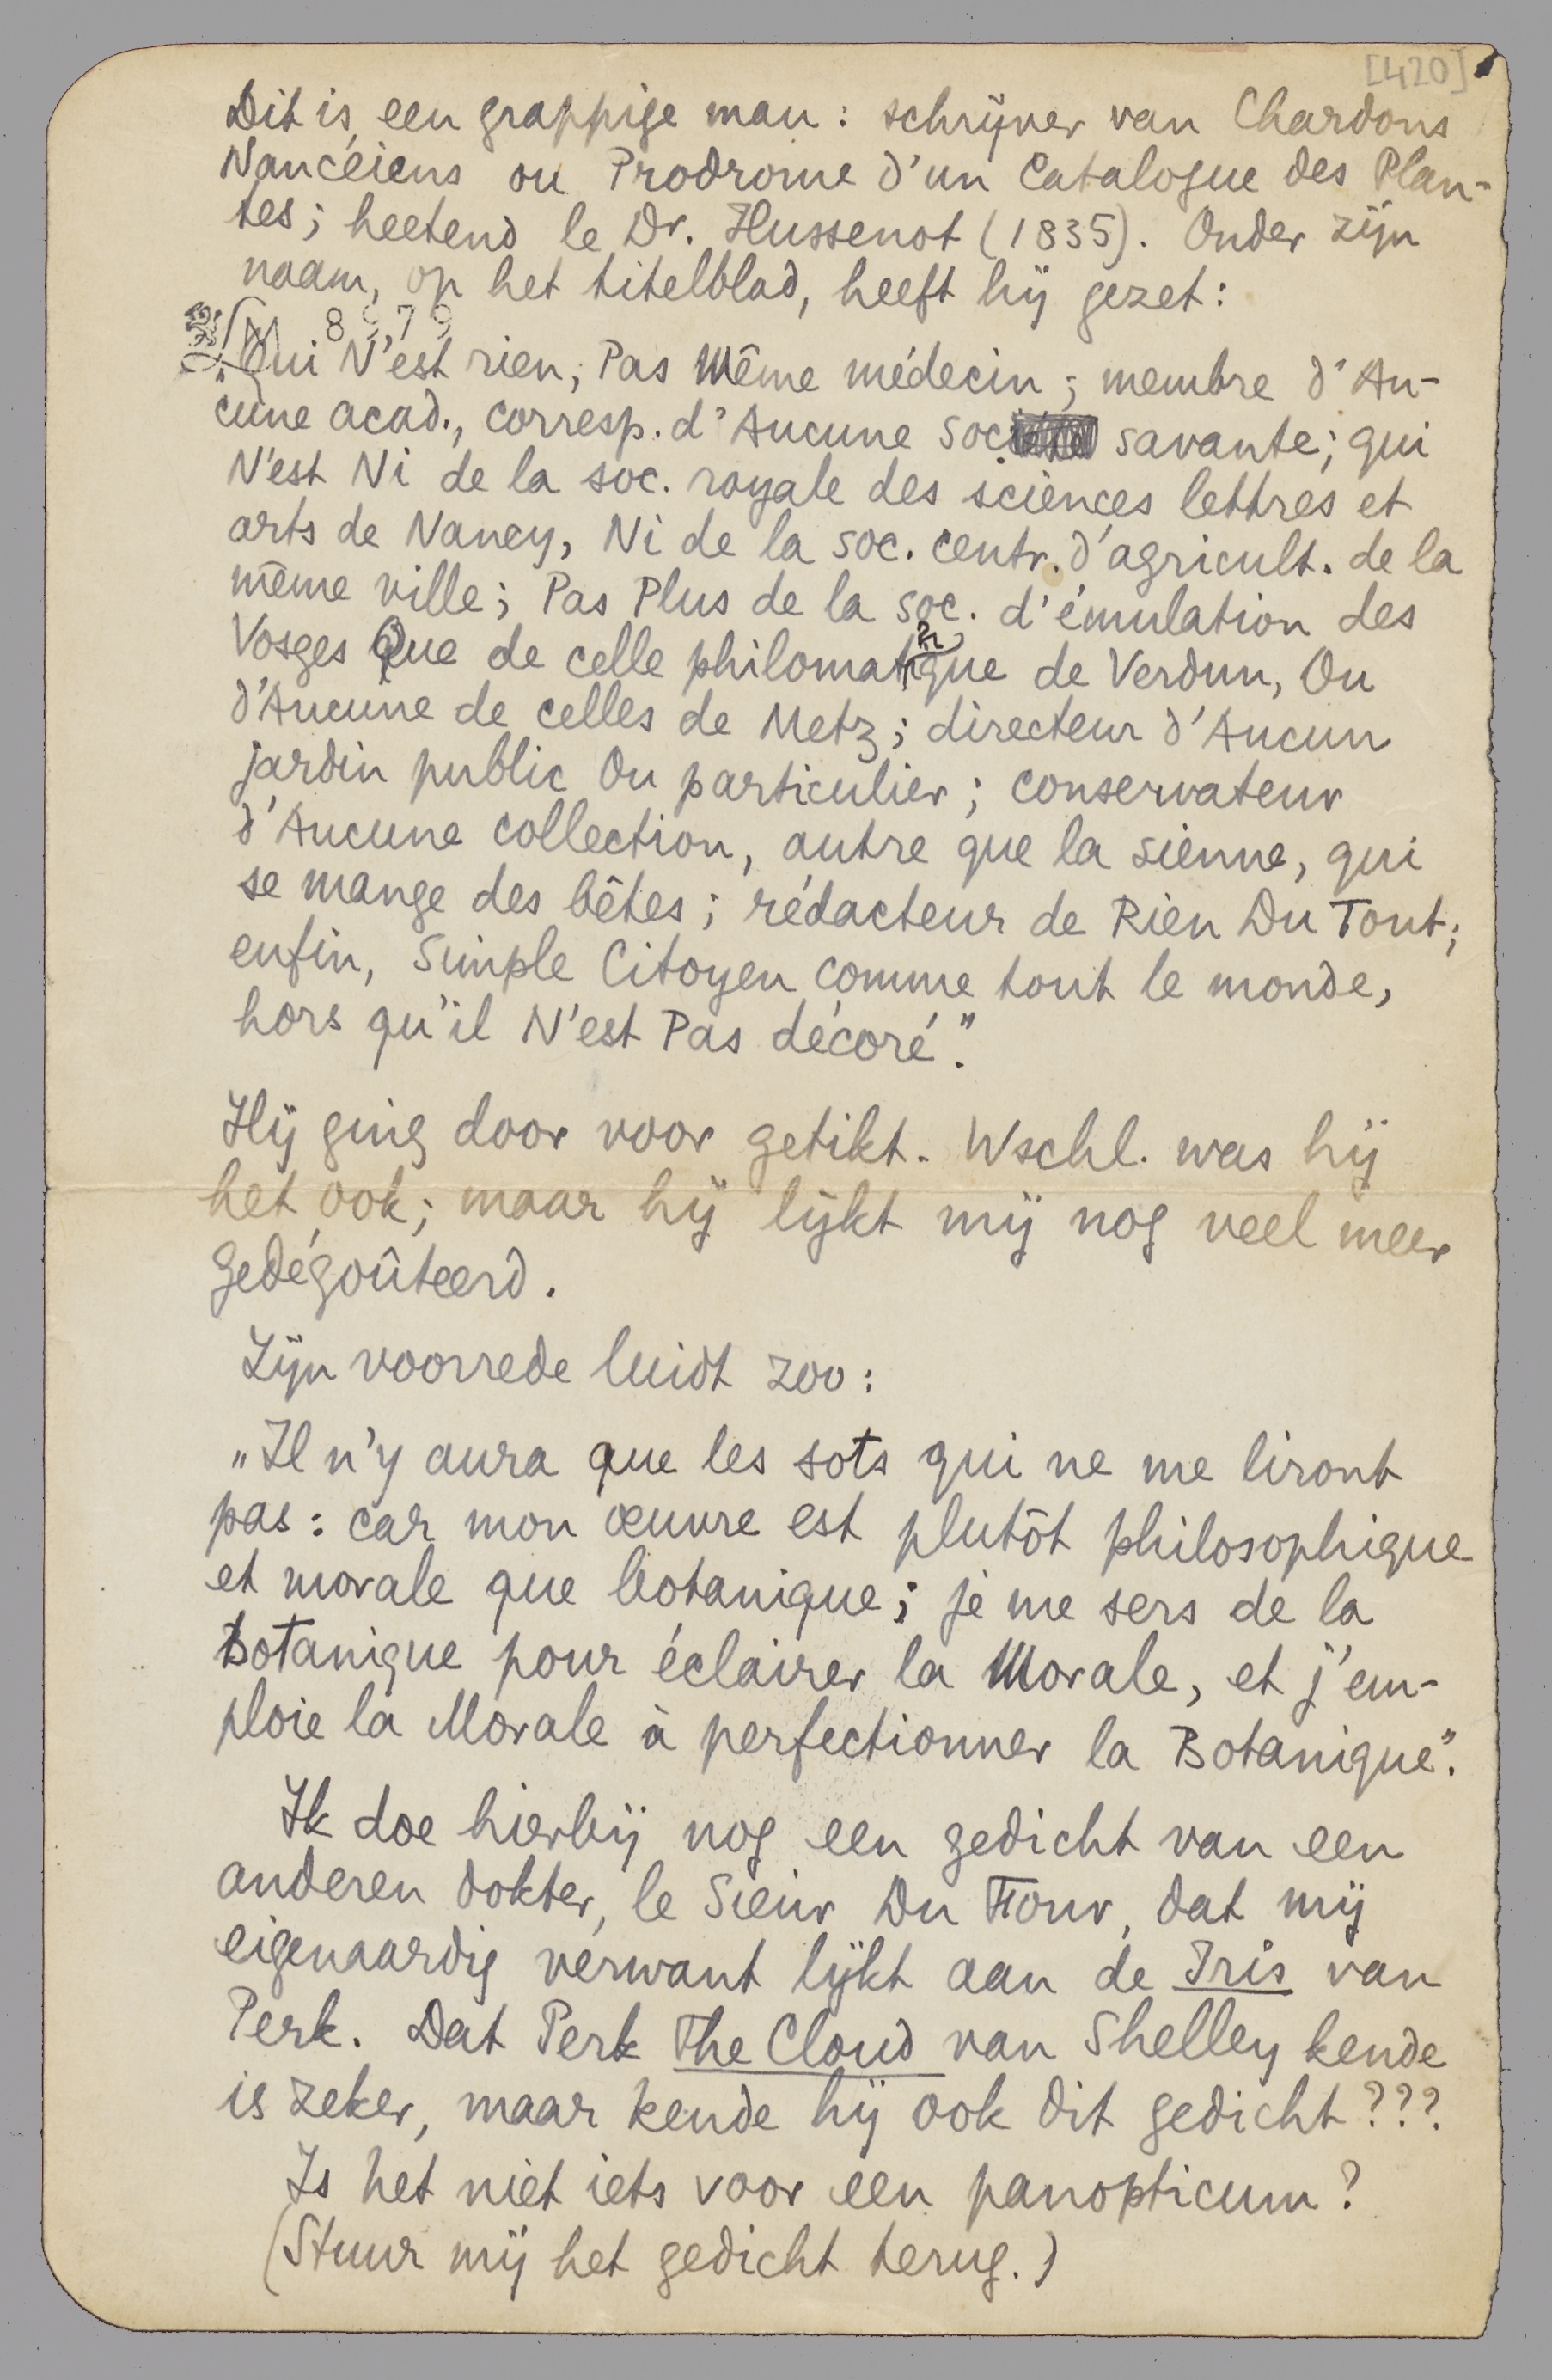 [420]
Dit is een grappige man: schrijver van Chardons
Nancéiens ou Prodrome d'un Catalogue des Plan-
tes; heetend le Dr. Hussenot (1835). Onder zijn
naam, op het titelblad, heeft hij gezet:
8979
„Qui N'est rien, Pas Même médecin; membre d'Au-
cune acad., corresp. d'Aucune soc savante; qui
N'est Ni de la soc. royale des sciences lettres et
arts de Nancy, Ni de la soc. centr. d'agricult. de la
même ville; Pas Plus de la soc. d'émulation des
Vosges Que de celle philomatique de Verdun, Ou
d'Aucune de celles de Metz; directeur d'Aucun
jardin public Ou particulier; conservateur
d'Aucune collection, autre que la sienne, qui
se mange des bêtes; rédacteur de Rien Du Tout;
enfin, Simple Citoyen comme tout le monde,
hors qu'il N'est Pas décoré."
Hij ging door voor getikt. Wschl. was hij
het ook; maar hij lijkt mij nog veel meer
gedégoûteerd.
Zijn voorrede luidt zoo:
„Il n'y aura que les sots qui ne me liront
pas: car mon œuvre est plutôt philosophique
et morale que botanique; je me sers de la
Botanique pour éclairer la Morale, et j'em-
ploie la Morale à perfectionner la Botanique".
Ik doe hierbij nog een gedicht van een
anderen dokter, le Sieur Du Four, dat mij
eigenaardig verwant lijkt aan de Iris van
Perk. Dat Perk The Cloud van Shelley kende
is zeker, maar kende hij ook dit gedicht???
Is het niet iets voor een panopticum?
(Stuur mij het gedicht terug.)